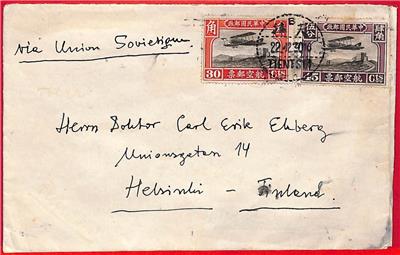 via Union Sovietique
中華民國郵政
角
30 航空郵票 CTS
22.12.30.16
TIENTSIN
中華民國郵政
45 航空郵票 CTS
Herrn Doktor Carl Erik Ekberg
Unionsgatan 14
Helsinki - Finland.